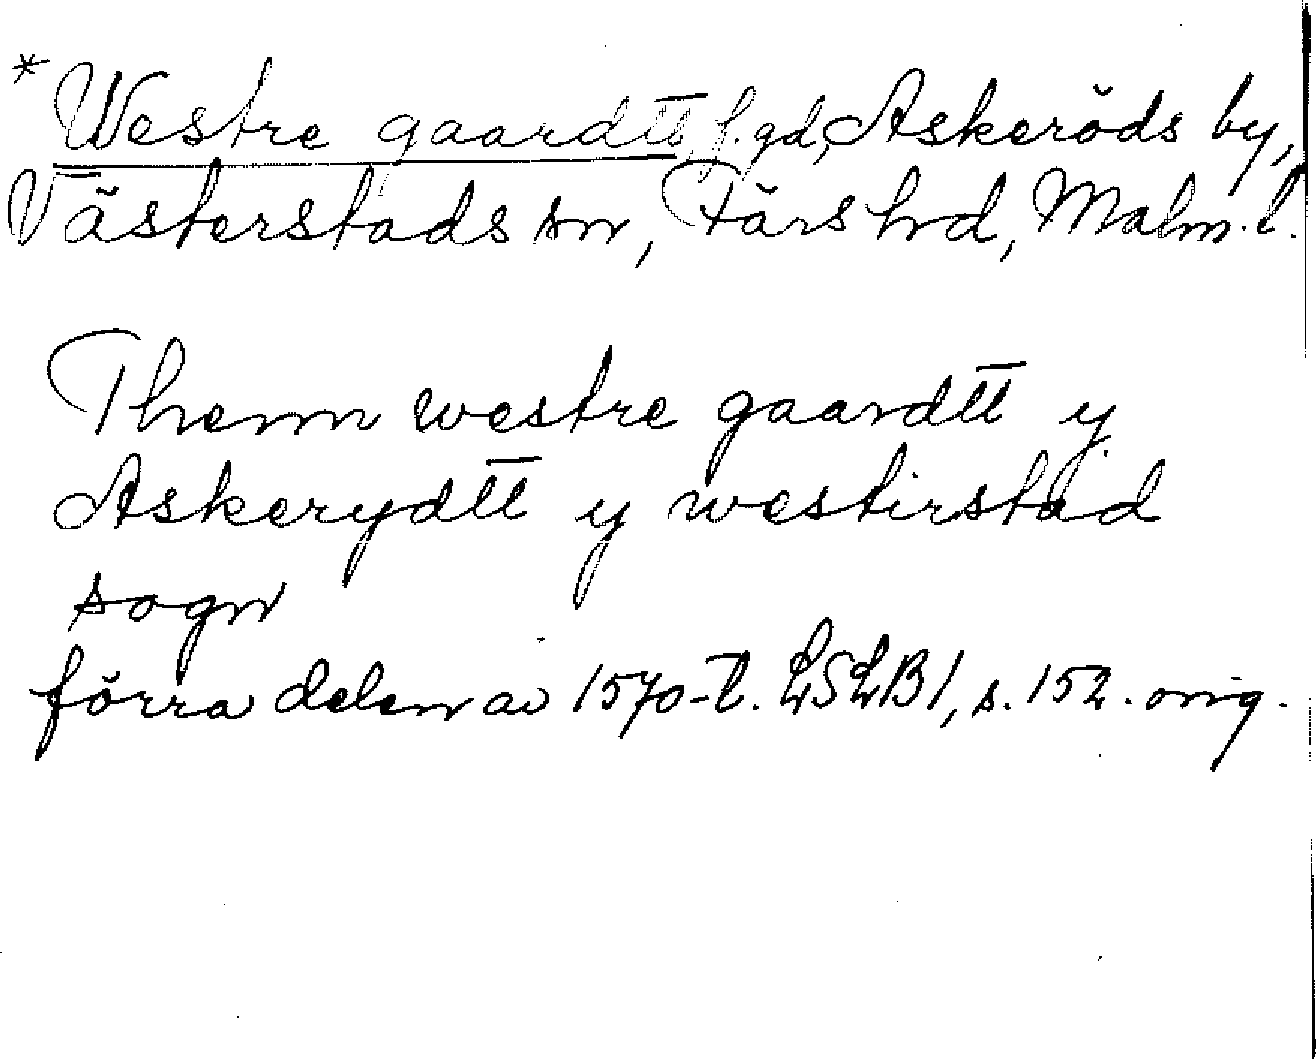 * Westre gaardtt, f. gd, Askeröds by,
Västerstads sn, Färs hd, Malm. l.
Thenn westre gaardtt y
Askerydtt y westirstad
sogn
förra delen av 1570-t. LSLB1, s. 152. orig.